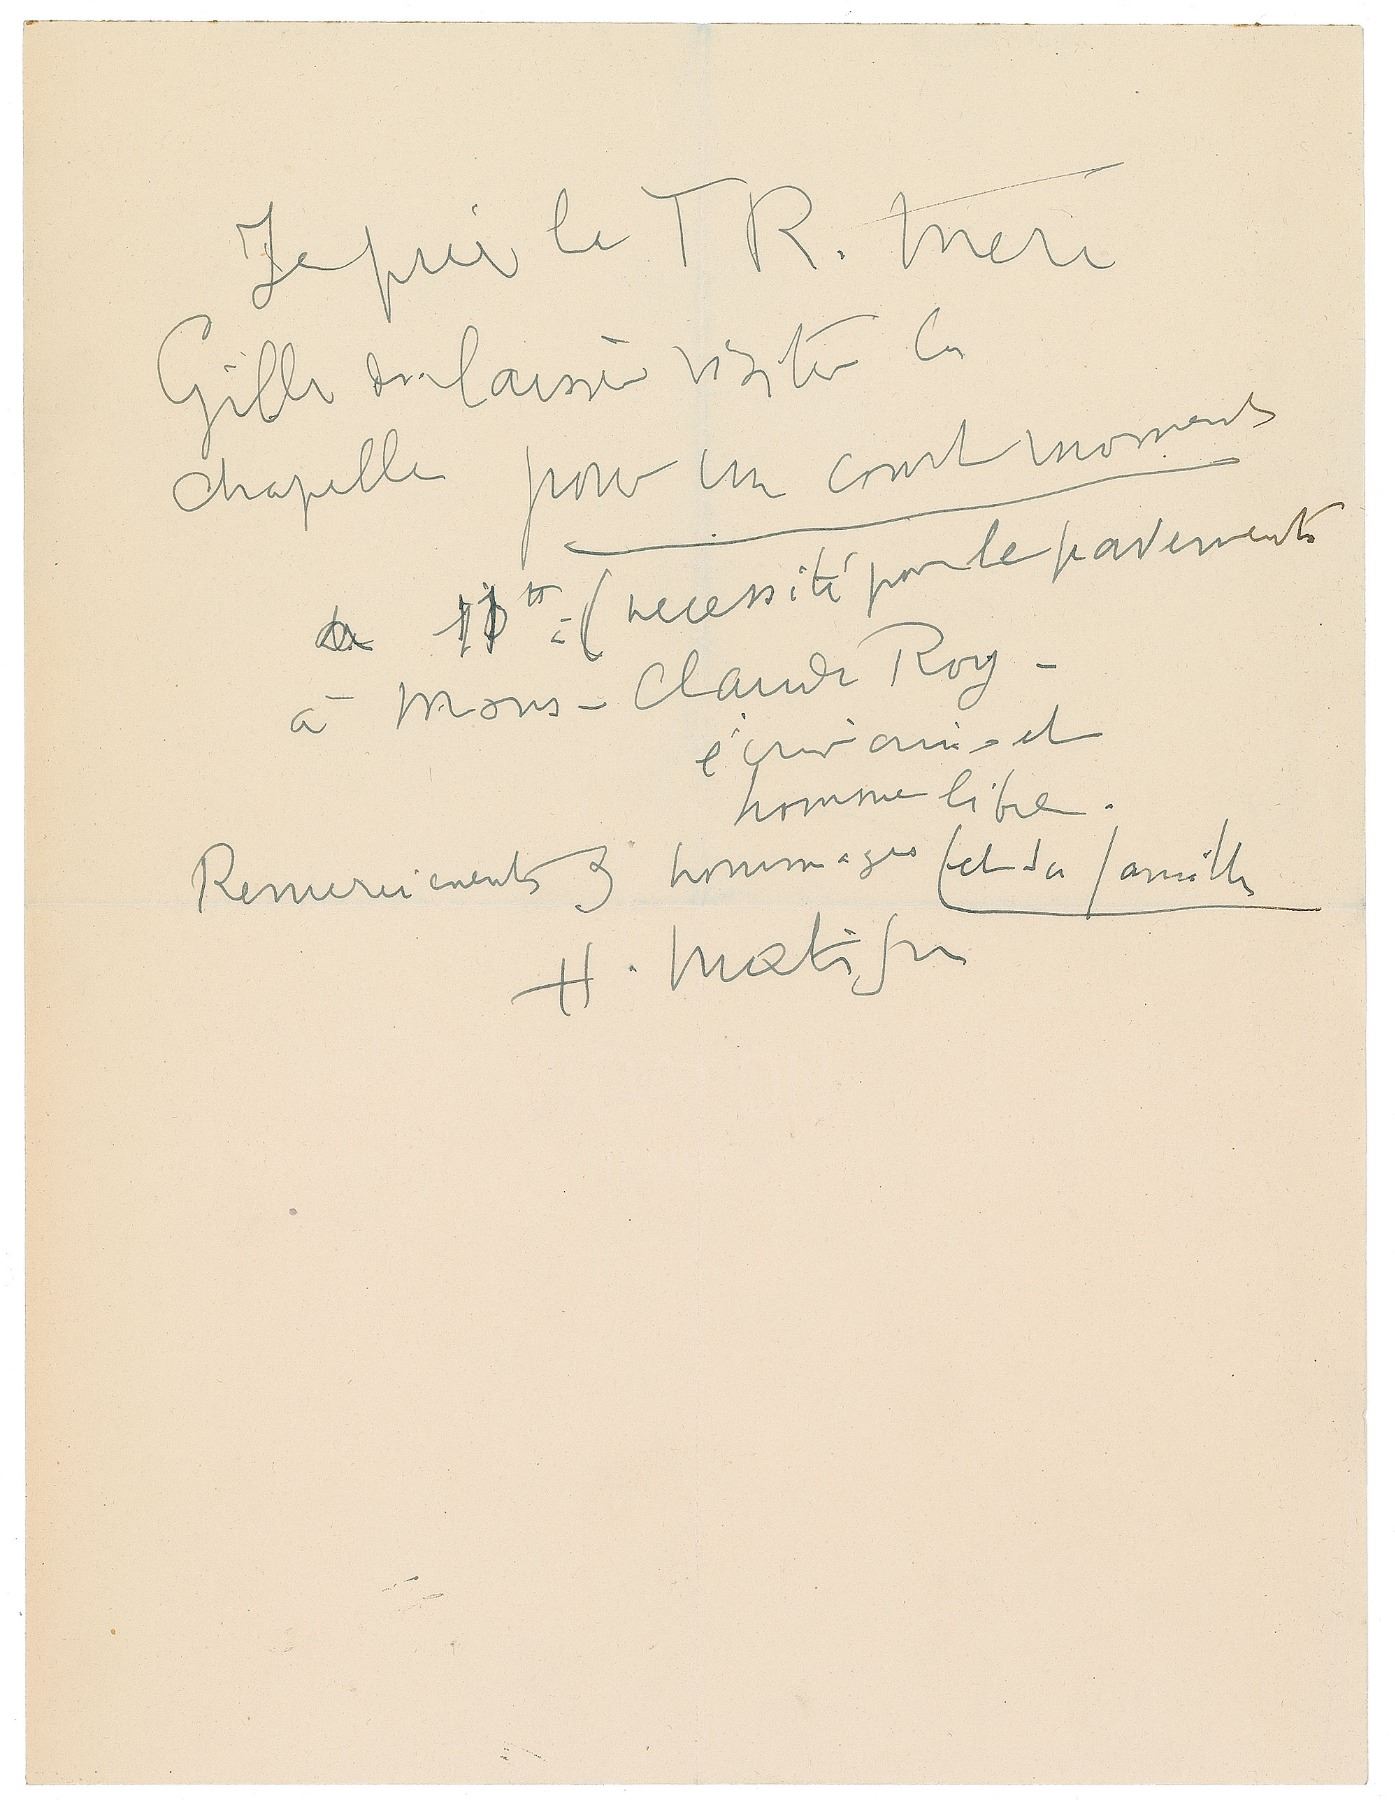 Je prie la T R. Mère
Gilles de laisser visiter la
chapelle pour un court moment
(necessité par le pavement
à Mons - Claude Roy -
écrivain - et
homme libre.
Remerciements & hommages (et sa famille
H. Matisse